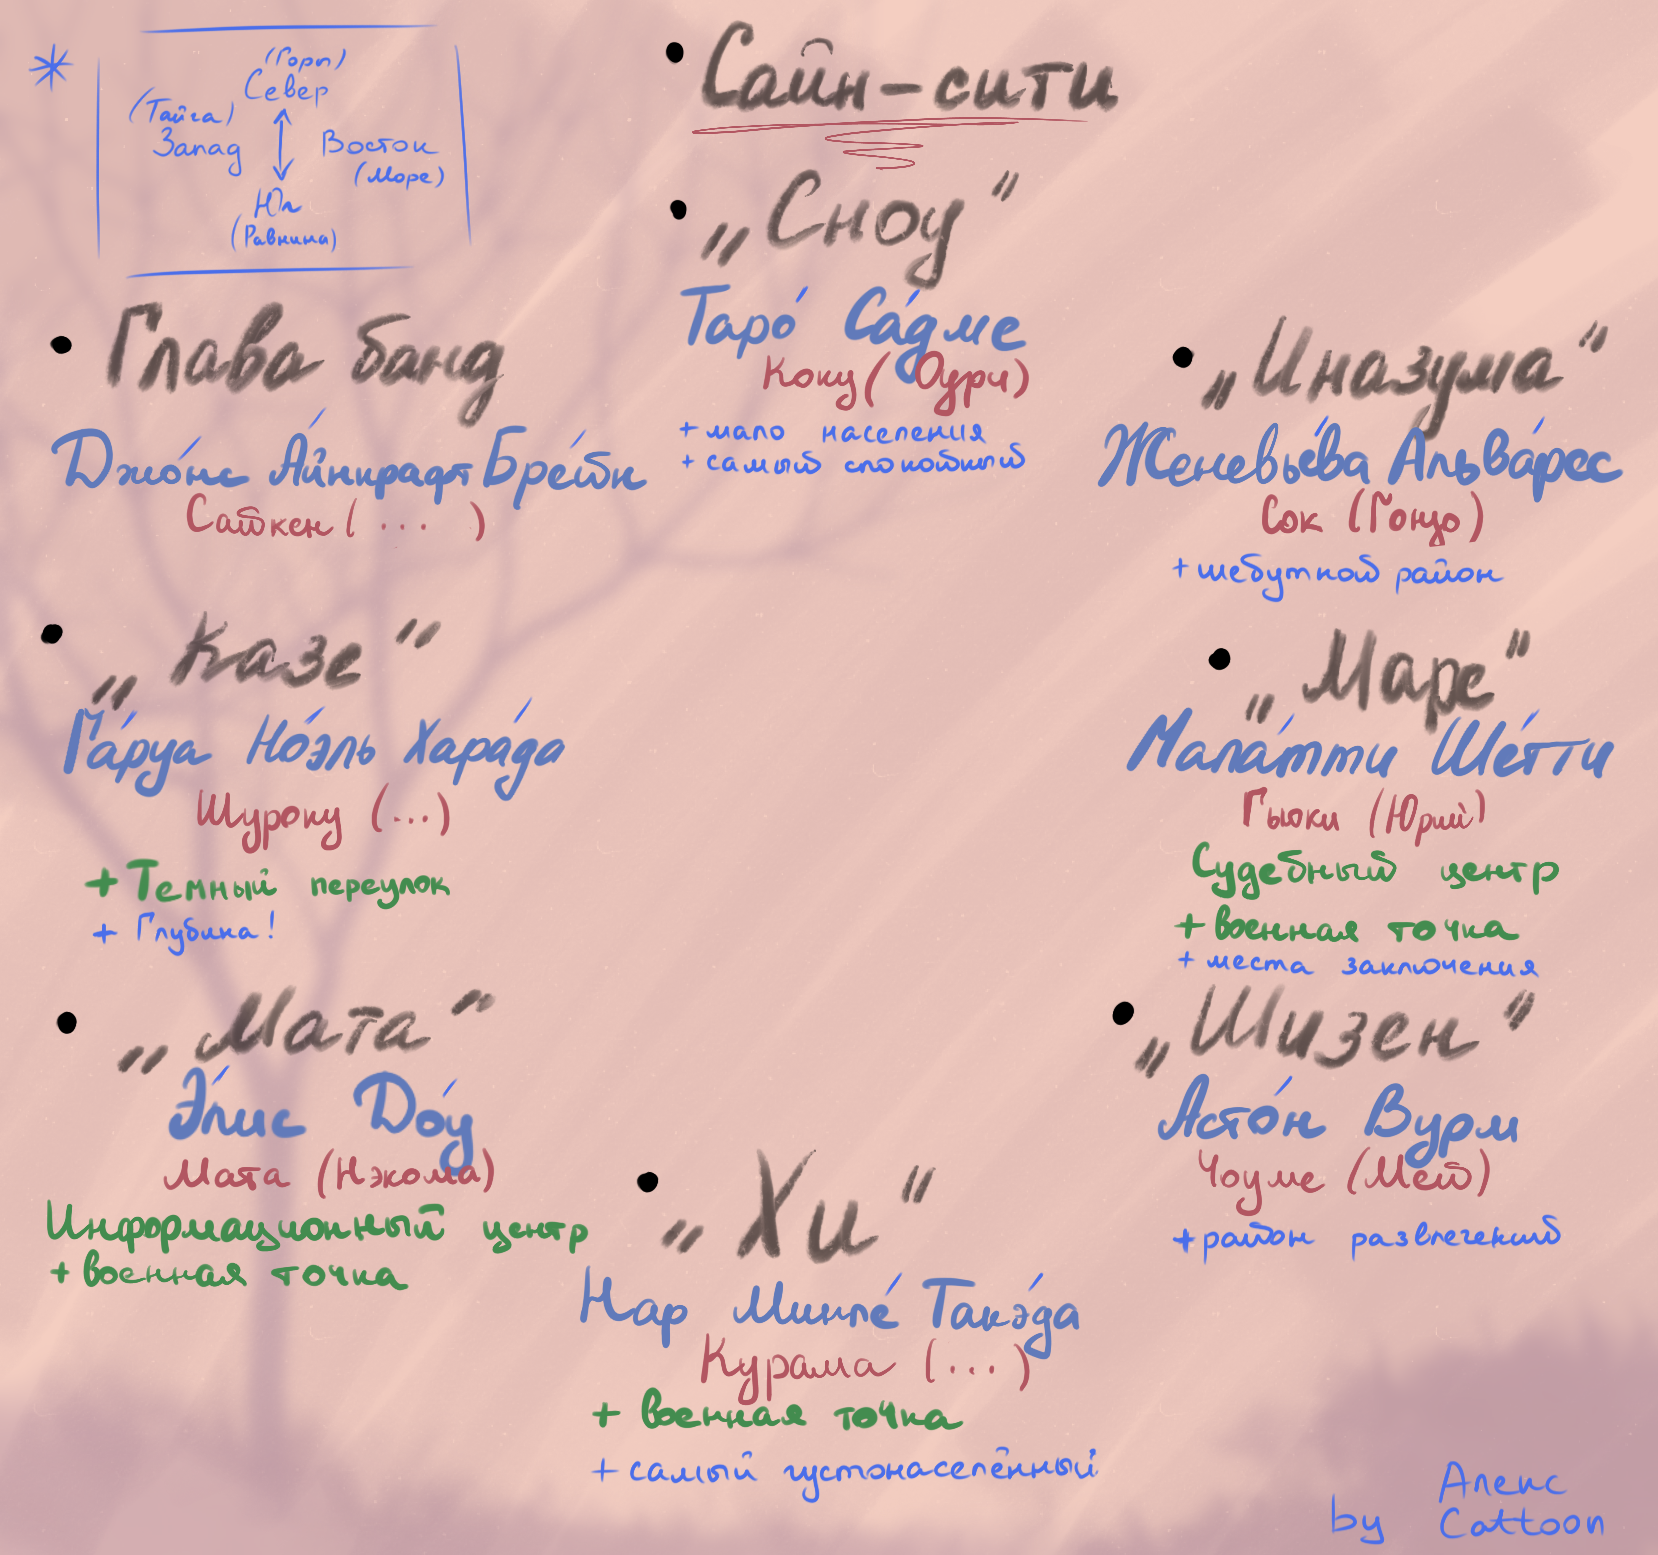 Сайн-сити
(Горы)
Север
(Тайга)
Запад
Восток
(Море)
Юг
(Равнина)
„Сноу“
Таро́ Са́дме
Коку (Оури)
+ мало населения
+ самый спокойный
Глава банд
Джо́нс А́йнкрафт Бре́йн
Сайкен (...)
„Иназума“
Женевье́ва Альва́рес
Сок (Гонцо)
+ шебутной район
„Казе“
Га́руа Но́эль Хара́да
Шуроку (...)
+ Темный переулок
+ Глубина!
„Маре“
Мала́тти Ше́тти
Гьюки (Юрий)
Судебный центр
+ военная точка
+ места заключения
„Мата“
Э́лис До́у
Мата (Нэкома)
Информационный центр
+ военная точка
„Шизен“
Асто́н Вурм
Чоуме (Мей)
+ район развлечений
„Хи“
Нар Минле́ Такэ́да
Курама (...)
+ военная точка
+ самый густонаселённый
by Алекс
Cattoon